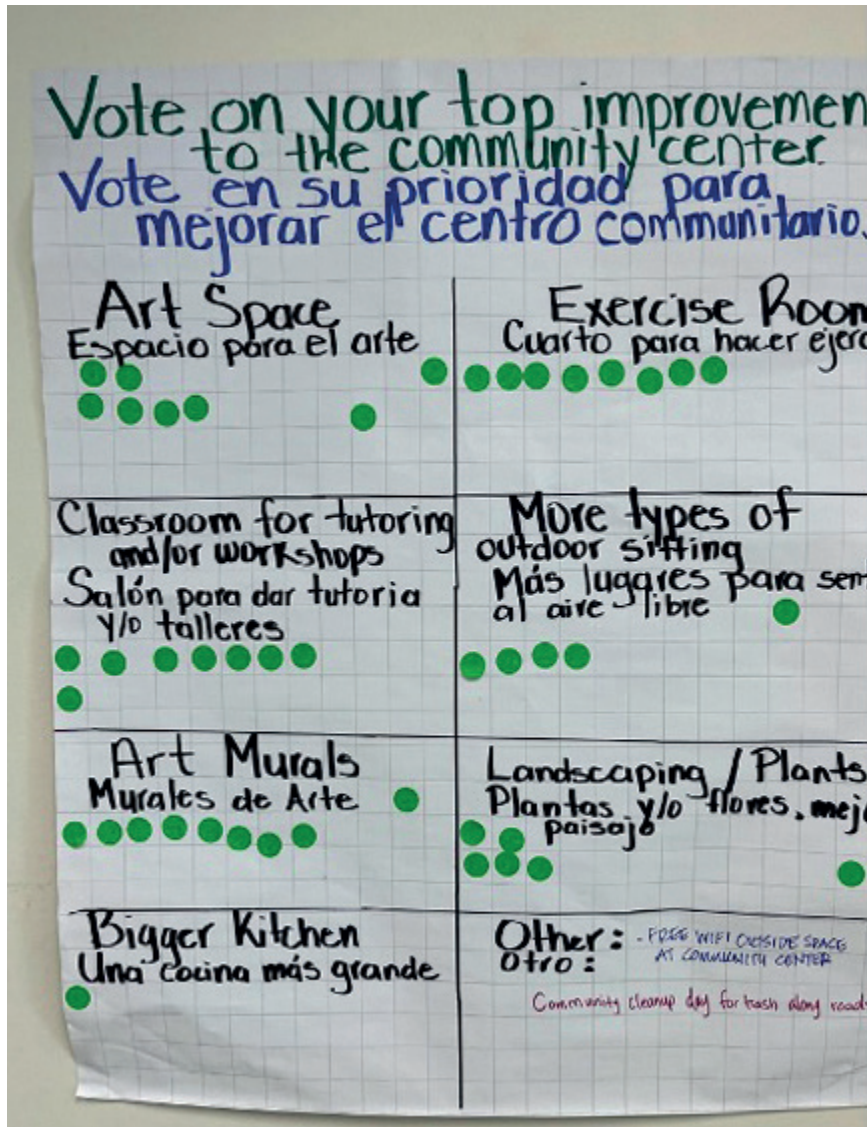 Vote on your top improvemen
to the community center.
Vote en su prioridad para
mejorar el centro communitario.
Art Space
Espacio para el arte
Exercise Room
Cuarto para hacer ejerc
Classroom for tutoring
and/or workshops
Salón para dar tutoria
y/o talleres
More types of
outdoor sitting
Más lugares para sen
al aire libre
Art Murals
Murales de Arte
Landscaping / Plants
Plantas y/o flores, mejo
paisajo
Bigger Kitchen
Una cocina más grande
Other:
Otro:
- FREE WIFI OUTSIDE SPACE
AT COMMUNITY CENTER
Community cleanup day for trash along road